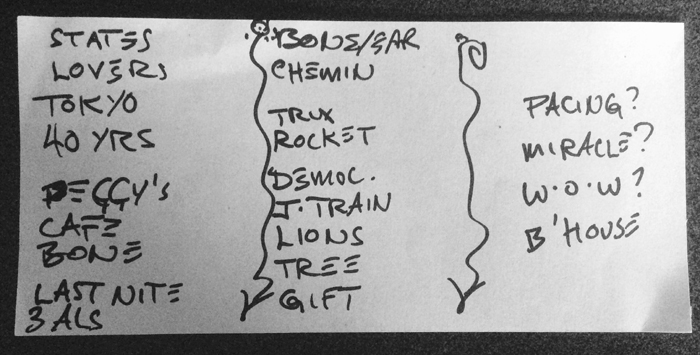 STATES
LOVERS
TOKYO
40 YRS
PEGGY'S
CAFE
BONE
LAST NITE
3 ALS
BONE/EAR
CHEMIN
TRUX
ROCKET
DEMOC.
J. TRAIN
LIONS
TREE
GIFT
PACING?
MIRACLE?
W.O.W?
B'HOUSE